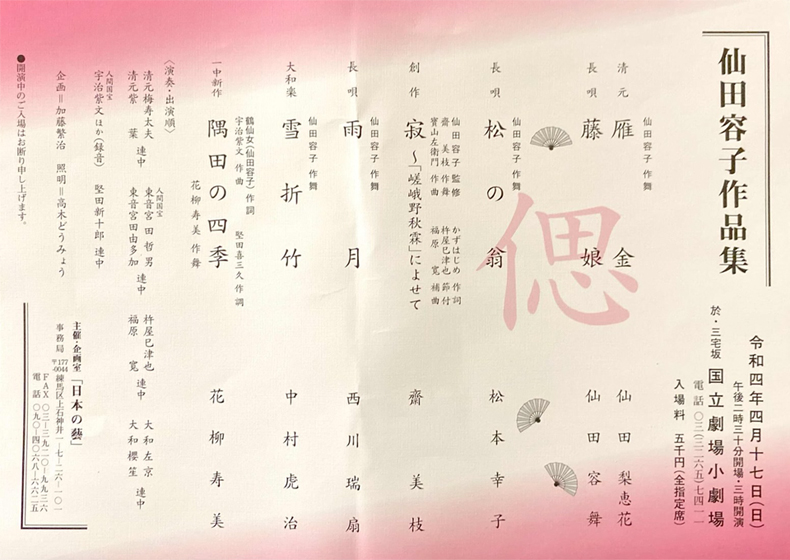 仙田容子作品集
令和四年四月十七日(日)
午後二時三十分開場・三時開演
於・三宅坂 国立劇場小劇場
電話 〇三(三二六五)七四一一
入場料 五千円(全指定席)
偲
仙田容子 作舞
清元 雁金 仙田梨恵花
長唄 藤娘 仙田容舞
仙田容子 作舞
長唄 松の翁 松本幸子
仙田容子 監修
齋美枝 作舞 かずはじめ 作詞
寳山左衛門 作曲 杵屋巳津也 節付
福原寛 補曲
創作 寂～「嵯峨野秋霖」によせて 齋美枝
仙田容子 作舞
長唄 雨月 西川瑞扇
仙田容子 作舞
大和楽 雪折竹 中村虎治
鶴仙女(仙田容子) 作詞
宇治紫文 作曲 堅田喜三久 作調
一中新作 隅田の四季 花柳寿美
花柳寿美 作舞
〈演奏・出演順〉
清元梅寿太夫 連中
清元紫葉 連中
人間国宝
東音宮田哲男 連中
東音宮田由多加 連中
杵屋巳津也 連中
福原寛 連中
大和左京 連中
大和櫻笙 連中
人間国宝
宇治紫文ほか(録音) 堅田新十郎 連中
企画=加藤繁治 照明=高木どうみょう
●開演中のご入場はお断り申し上げます。
主催・企画室 「日本の藝」
事務局 〒177-0044 練馬区上石神井一-七-二六-一〇一
FAX 〇三-三九二〇-九九三六
電話 〇九〇-四〇六八-六六二五